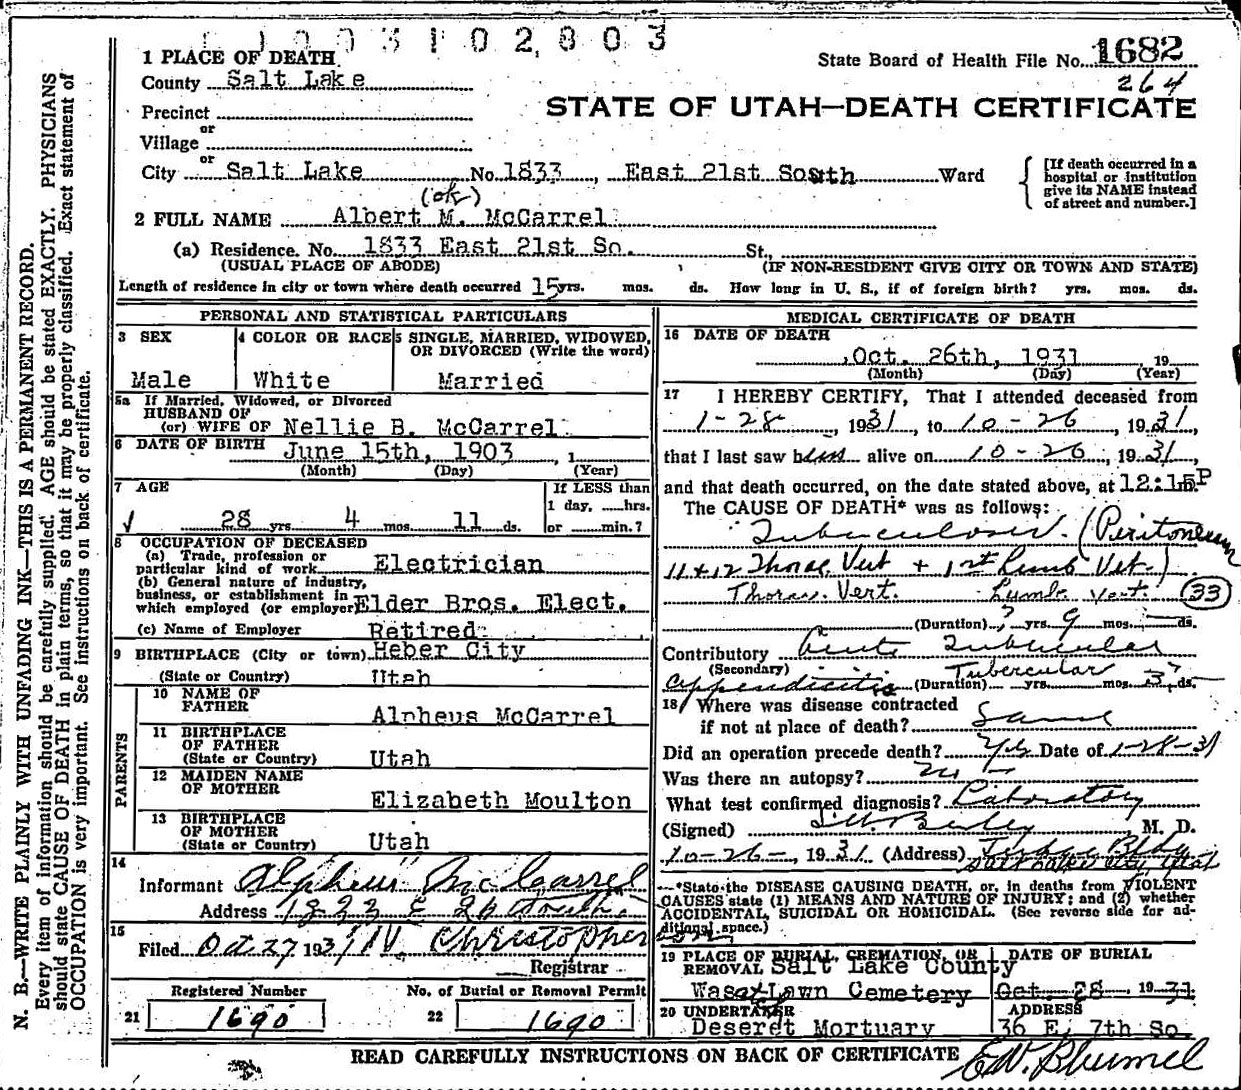 0 0 3 1 0 2 8 0 3
1 PLACE OF DEATH
State Board of Health File No. 1682
264
County Salt Lake
STATE OF UTAH—DEATH CERTIFICATE
Precinct
or
Village
or
City Salt Lake No. 1833, East 21st South Ward
[If death occurred in a
hospital or institution
give its NAME instead
of street and number.]
(ok)
2 FULL NAME Albert M. McCarrel
(a) Residence. No. 1833 East 21st So. St.,
(USUAL PLACE OF ABODE) (IF NON-RESIDENT GIVE CITY OR TOWN AND STATE)
Length of residence in city or town where death occurred 15 yrs. mos. ds. How long in U. S., if of foreign birth? yrs. mos. ds.
PERSONAL AND STATISTICAL PARTICULARS
3 SEX
Male
4 COLOR OR RACE
White
5 SINGLE, MARRIED, WIDOWED,
OR DIVORCED (Write the word)
Married
5a If Married, Widowed, or Divorced
HUSBAND OF
(or) WIFE OF Nellie B. McCarrel
6 DATE OF BIRTH June 15th, 1903, 1
(Month) (Day) (Year)
7 AGE
28 yrs 4 mos. 11 ds.
If LESS than
1 day, hrs.
or min.?
8 OCCUPATION OF DECEASED
(a) Trade, profession or
particular kind of work Electrician
(b) General nature of industry,
business, or establishment in
which employed (or employer) Elder Bros. Elect.
(c) Name of Employer Retired
9 BIRTHPLACE (City or town) Heber City
(State or Country) Utah
PARENTS
10 NAME OF
FATHER Alpheus McCarrel
11 BIRTHPLACE
OF FATHER
(State or Country) Utah
12 MAIDEN NAME
OF MOTHER Elizabeth Moulton
13 BIRTHPLACE
OF MOTHER
(State or Country) Utah
14
Informant Alpheus McCarrel
Address
15
Filed Oct 27 1931 Christopherson
Registrar
Registered Number No. of Burial or Removal Permit
21 1690 22 1690
MEDICAL CERTIFICATE OF DEATH
16 DATE OF DEATH
Oct. 26th, 1931 19
(Month) (Day) (Year)
17 I HEREBY CERTIFY, That I attended deceased from
1-28, 1931, to 10-26, 1931,
that I last saw him alive on 10-26, 1931,
and that death occurred, on the date stated above, at 12:15 P
The CAUSE OF DEATH* was as follows:
Tuberculosis. (Peritoneum
11 + 12 Thorac Vert + 1st Lumb Vet.)
Thorac. Vert. Lumb. Vert. 33
(Duration) ? yrs. 9 mos. ds.
Contributory Acute Tubercular
(Secondary) Tubercular
appendicitis (Duration) yrs. mos. 3 ds.
18 Where was disease contracted
if not at place of death? Same
Did an operation precede death? Yes Date of 1-28-31
Was there an autopsy?
What test confirmed diagnosis? Laboratory
(Signed) M. D.
10-26-, 1931 (Address) Bldg
Salt Lake City Utah
*State the DISEASE CAUSING DEATH, or, in deaths from VIOLENT
CAUSES state (1) MEANS AND NATURE OF INJURY; and (2) whether
ACCIDENTAL, SUICIDAL OR HOMICIDAL. (See reverse side for ad-
ditional space.)
19 PLACE OF BURIAL, CREMATION, OR
REMOVAL Salt Lake County
Wasatch Lawn Cemetery
DATE OF BURIAL
Oct. 28, 1931
20 UNDERTAKER
Deseret Mortuary
ADDRESS
36 E. 7th So.
READ CAREFULLY INSTRUCTIONS ON BACK OF CERTIFICATE
N. B.—WRITE PLAINLY WITH UNFADING INK—THIS IS A PERMANENT RECORD.
Every item of information should be carefully supplied. AGE should be stated EXACTLY. PHYSICIANS
should state CAUSE OF DEATH in plain terms, so that it may be properly classified. Exact statement of
OCCUPATION is very important. See instructions on back of certificate.